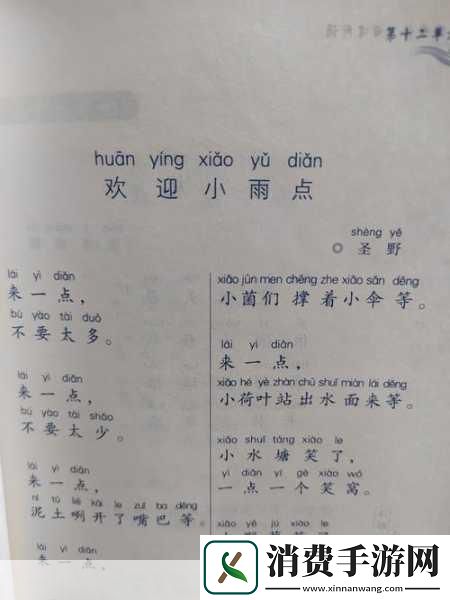 第十二单
huān yíng xiǎo yǔ diǎn
欢迎小雨点
shèng yě
圣野
lái yì diǎn
来一点，
bú yào tài duō
不要太多。
lái yì diǎn
来一点，
bú yào tài shǎo
不要太少。
lái yì diǎn
来一点，
ní tǔ liě kāi le zuǐ ba děng
泥土咧开了嘴巴等。
lái yì diǎn
来一点，
xiǎo jūn men chēng zhe xiǎo sǎn děng
小菌们撑着小伞等。
lái yì diǎn
来一点，
xiǎo hé yè zhàn chū shuǐ miàn lái děng
小荷叶站出水面来等。
xiǎo shuǐ táng xiào le
小水塘笑了，
yì diǎn yí gè xiào wō
一点一个笑窝。
xiǎo yě jú xiào le
消费手游网
www.xinnanwang.com